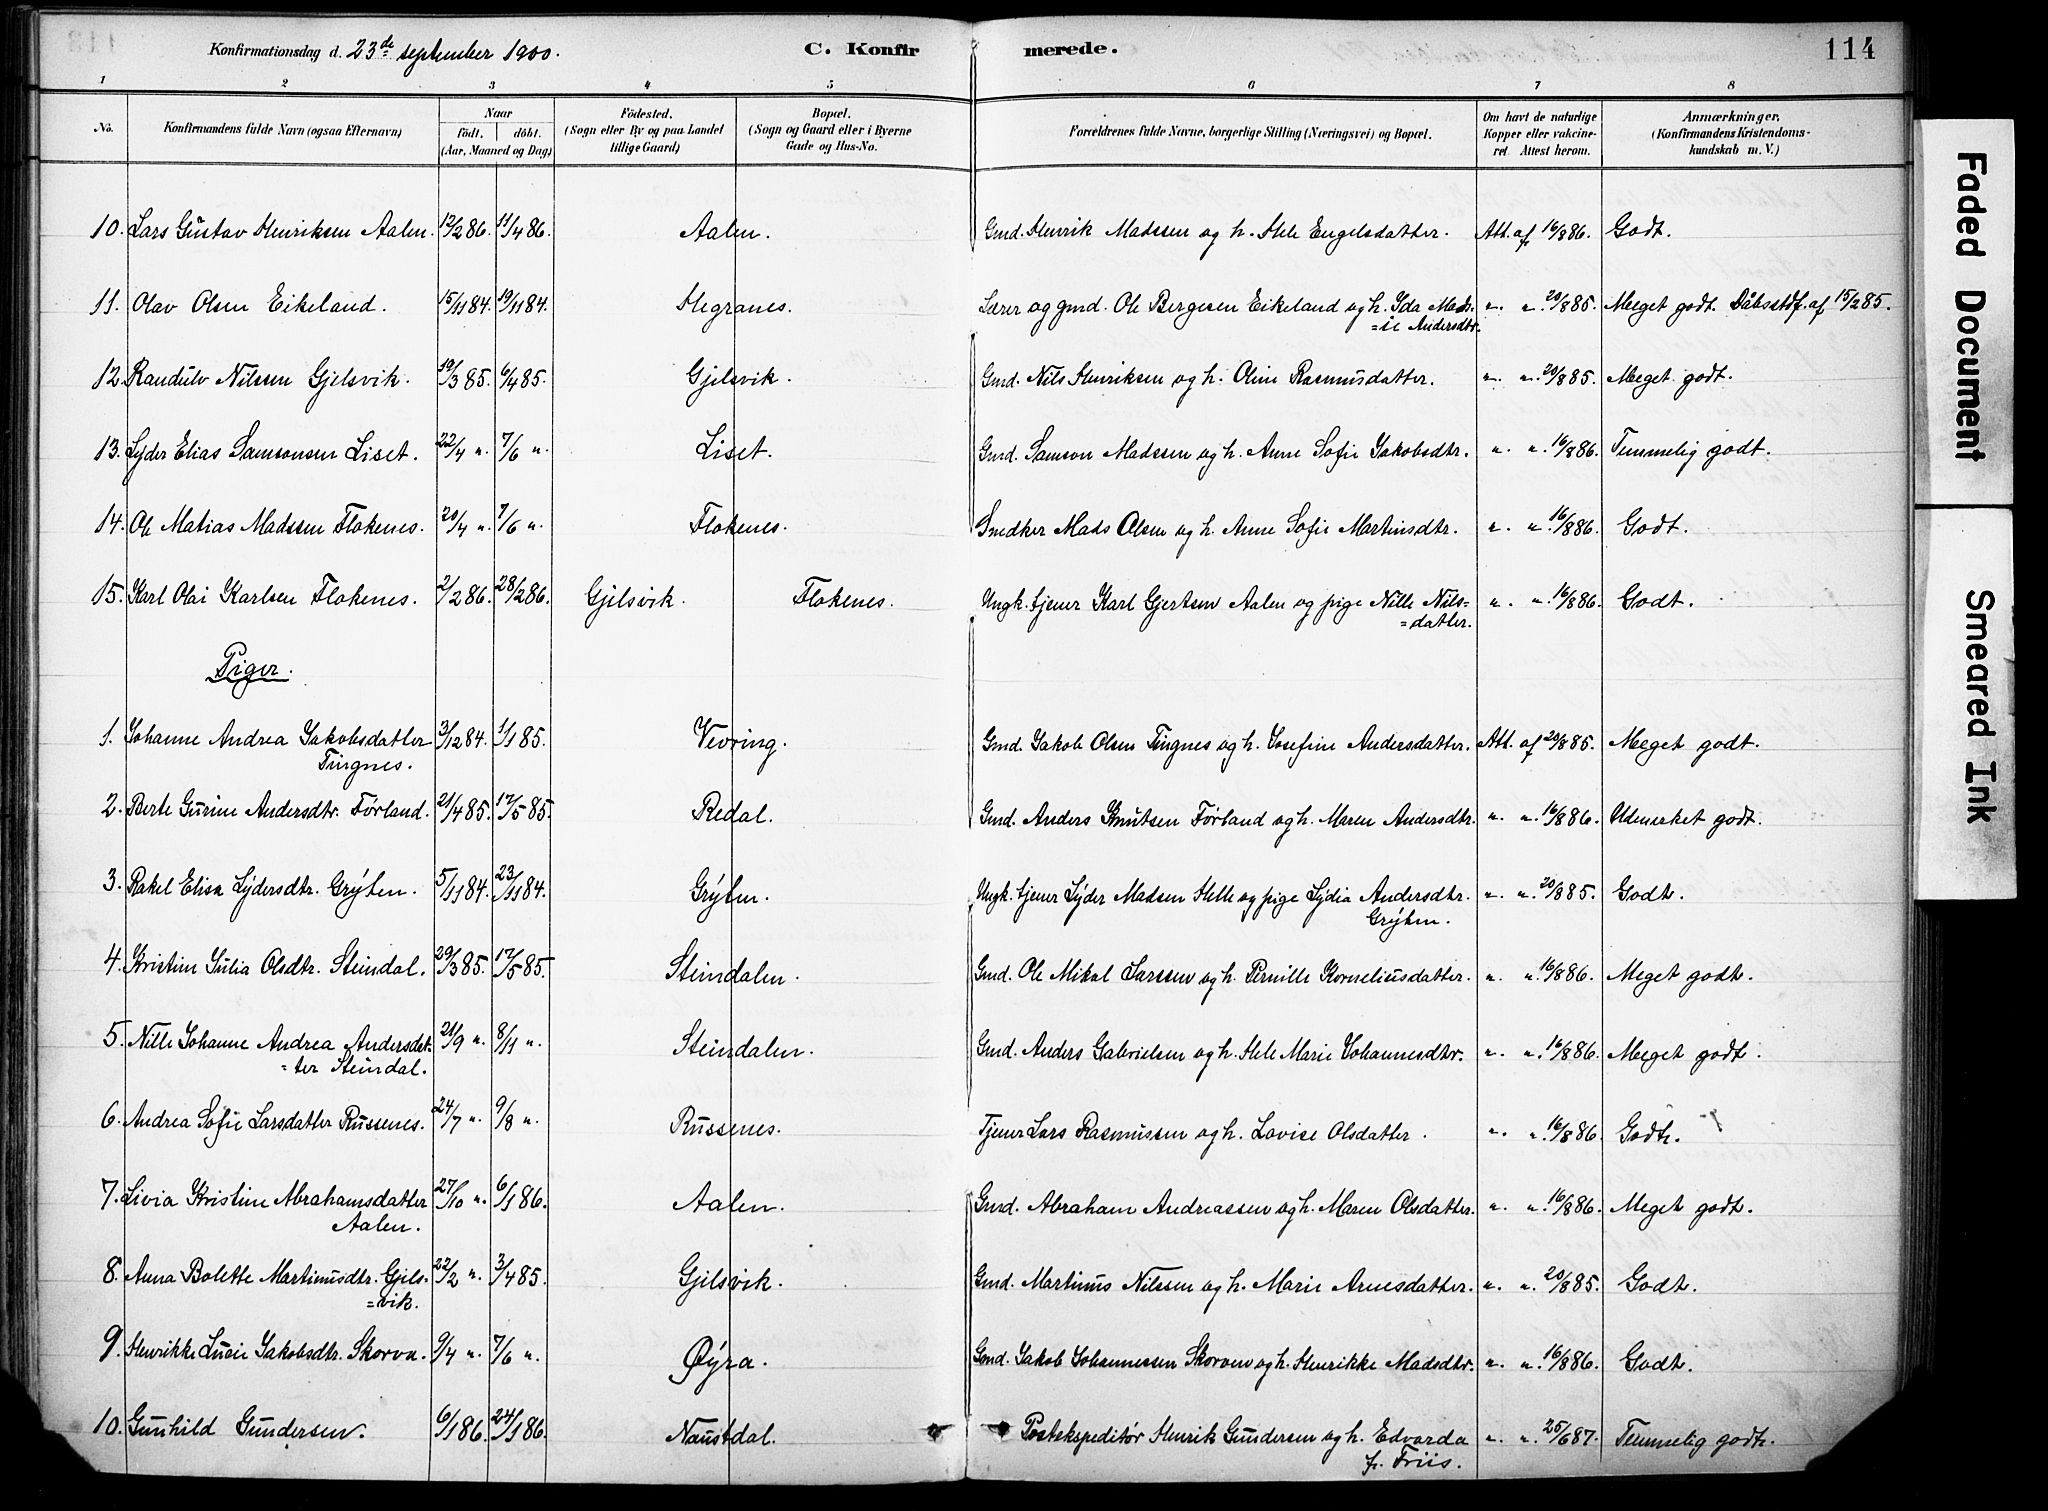 Konfirmationsdag d. 23de september 1900. C. Konfir merede. 114
1 2 3 4 5 6 7 8
No. Konfirmandens fulde Navn (ogsaa Efternavn) Naar født. døbt. (Aar, Maaned og Dag) Födested. (Sogn eller By og paa Landet tillige Gaard) Bopæl. (Sogn og Gaard eller i Byerne Gade og Hus-No. Forældrenes fulde Navne, borgerlige Stilling (Næringsvei) og Bopæl. Om havt de naturlige Kopper eller vakcineret. Attest herom. Anmærkninger. (Konfirmandens Kristendomskundskab m. V.)
10. Lars Gustav Henriksen Aalen. 12/2 86. 11/4 86. Aalen. Gmd. Henrik Madssen og h. Hele Engelsdatter. Att. af 16/8 86. Godt.
11. Olav Olsen Eikeland. 15/11 84. 19/11 84. Hegranes. Lærer og gmd. Ole Bergesen Eikeland og h. Ida Mads- " ". 20/8 85. Meget godt. Dåbsatdf. af 15/2 85.
=ie Andersdtr.
12. Randulv Nilssen Gjelsvik. 19/3 85. 6/4 85. Gjelsvik. Gmd. Nils Henriksen og h. Oline Rasmusdatter. " ". 20/8 85. Meget godt.
13. Lyder Elias Samsonsen Liset. 22/4 ". 7/6 ". Liset. Gmd. Samson Madssen og h. Anne Sofie Jakobsdtr. " ". 16/8 86. Temmelig godt.
14. Ole Matias Madssen Flokenes. 20/4 ". 7/6 ". Flokenes. Snedker Mads Olsen og h. Anne Sofie Martinsdtr. " ". 16/8 86. Godt.
15. Karl Olai Karlsen Flokenes. 2/2 86. 28/2 86. Gjelsvik. Flokenes. Ungk. tjener Karl Gjertsen Aalen og pige Nille Nils- " ". 16/8 86. Godt.
=datter.
Piger.
1. Johanne Andrea Jakobsdatter 3/12 84. 1/1 85. Vevring. Gmd. Jakob Olsen Tingnes og h. Josefine Andersdatter. Att. af 20/8 85. Meget godt.
Tingnes.
2. Berte Gurine Andersdtr. Førland. 21/4 85. 17/5 85. Redal. Gmd. Anders Knutsen Førland og h. Maren Andersdtr. " ". 16/8 86. Udmerket godt.
3. Rakel Elisa Lydersdtr. Grýten. 5/11 84. 23/11 84. Grýten. Ungk. tjener Lýder Madsen Helle og pige Lýdia Andersdtr. " ". 20/8 85. Godt.
Grýten.
4. Kristine Julia Olsdtr. Steindal. 29/3 85. 17/5 85. Steindalen. Gmd. Ole Mikal Larssen og h. Pernille Korneliusdatter. " ". 16/8 86. Meget godt.
5. Nille Johanne Andrea Andersdat- 21/9 ". 8/11 ". Steindalen. Gmd. Anders Gabrielsen og h. Hele Marie Johannesdtr. " ". 16/8 86. Meget godt.
=ter Steindal.
6. Andrea Sofie Larsdatter Russenes. 24/7 ". 9/8 ". Russenes. Tjener Lars Rasmussen og h. Lovise Olsdatter. " ". 16/8 86. Godt.
7. Livia Kristine Abrahamsdatter 27/10 ". 6/1 86. Aalen. Gmd. Abraham Andreassen og h. Maren Olsdatter. " ". 16/8 86. Meget godt.
Aalen.
8. Anna Bolette Martinusdtr. Gjels- 22/2 ". 3/4 85. Gjelsvik. Gmd. Martinus Nilssen og h. Marie Arnesdatter. " ". 20/8 85. Godt.
=vik.
9. Henrikke Lucie Jakobsdtr. Skorva. 9/4 ". 7/6 ". Øýra. Gmd. Jakob Johannessen Skorven og h. Henrikke Madsdtr. " ". 16/8 86. Godt.
10. Gunhild Gundersen. 6/1 86. 24/1 86. Naustdal. Postekspeditør Henrik Gundersen og h. Edvarda " ". 25/6 87. Temmelig godt.
f. Friis.
Faded Document
Smeared Ink